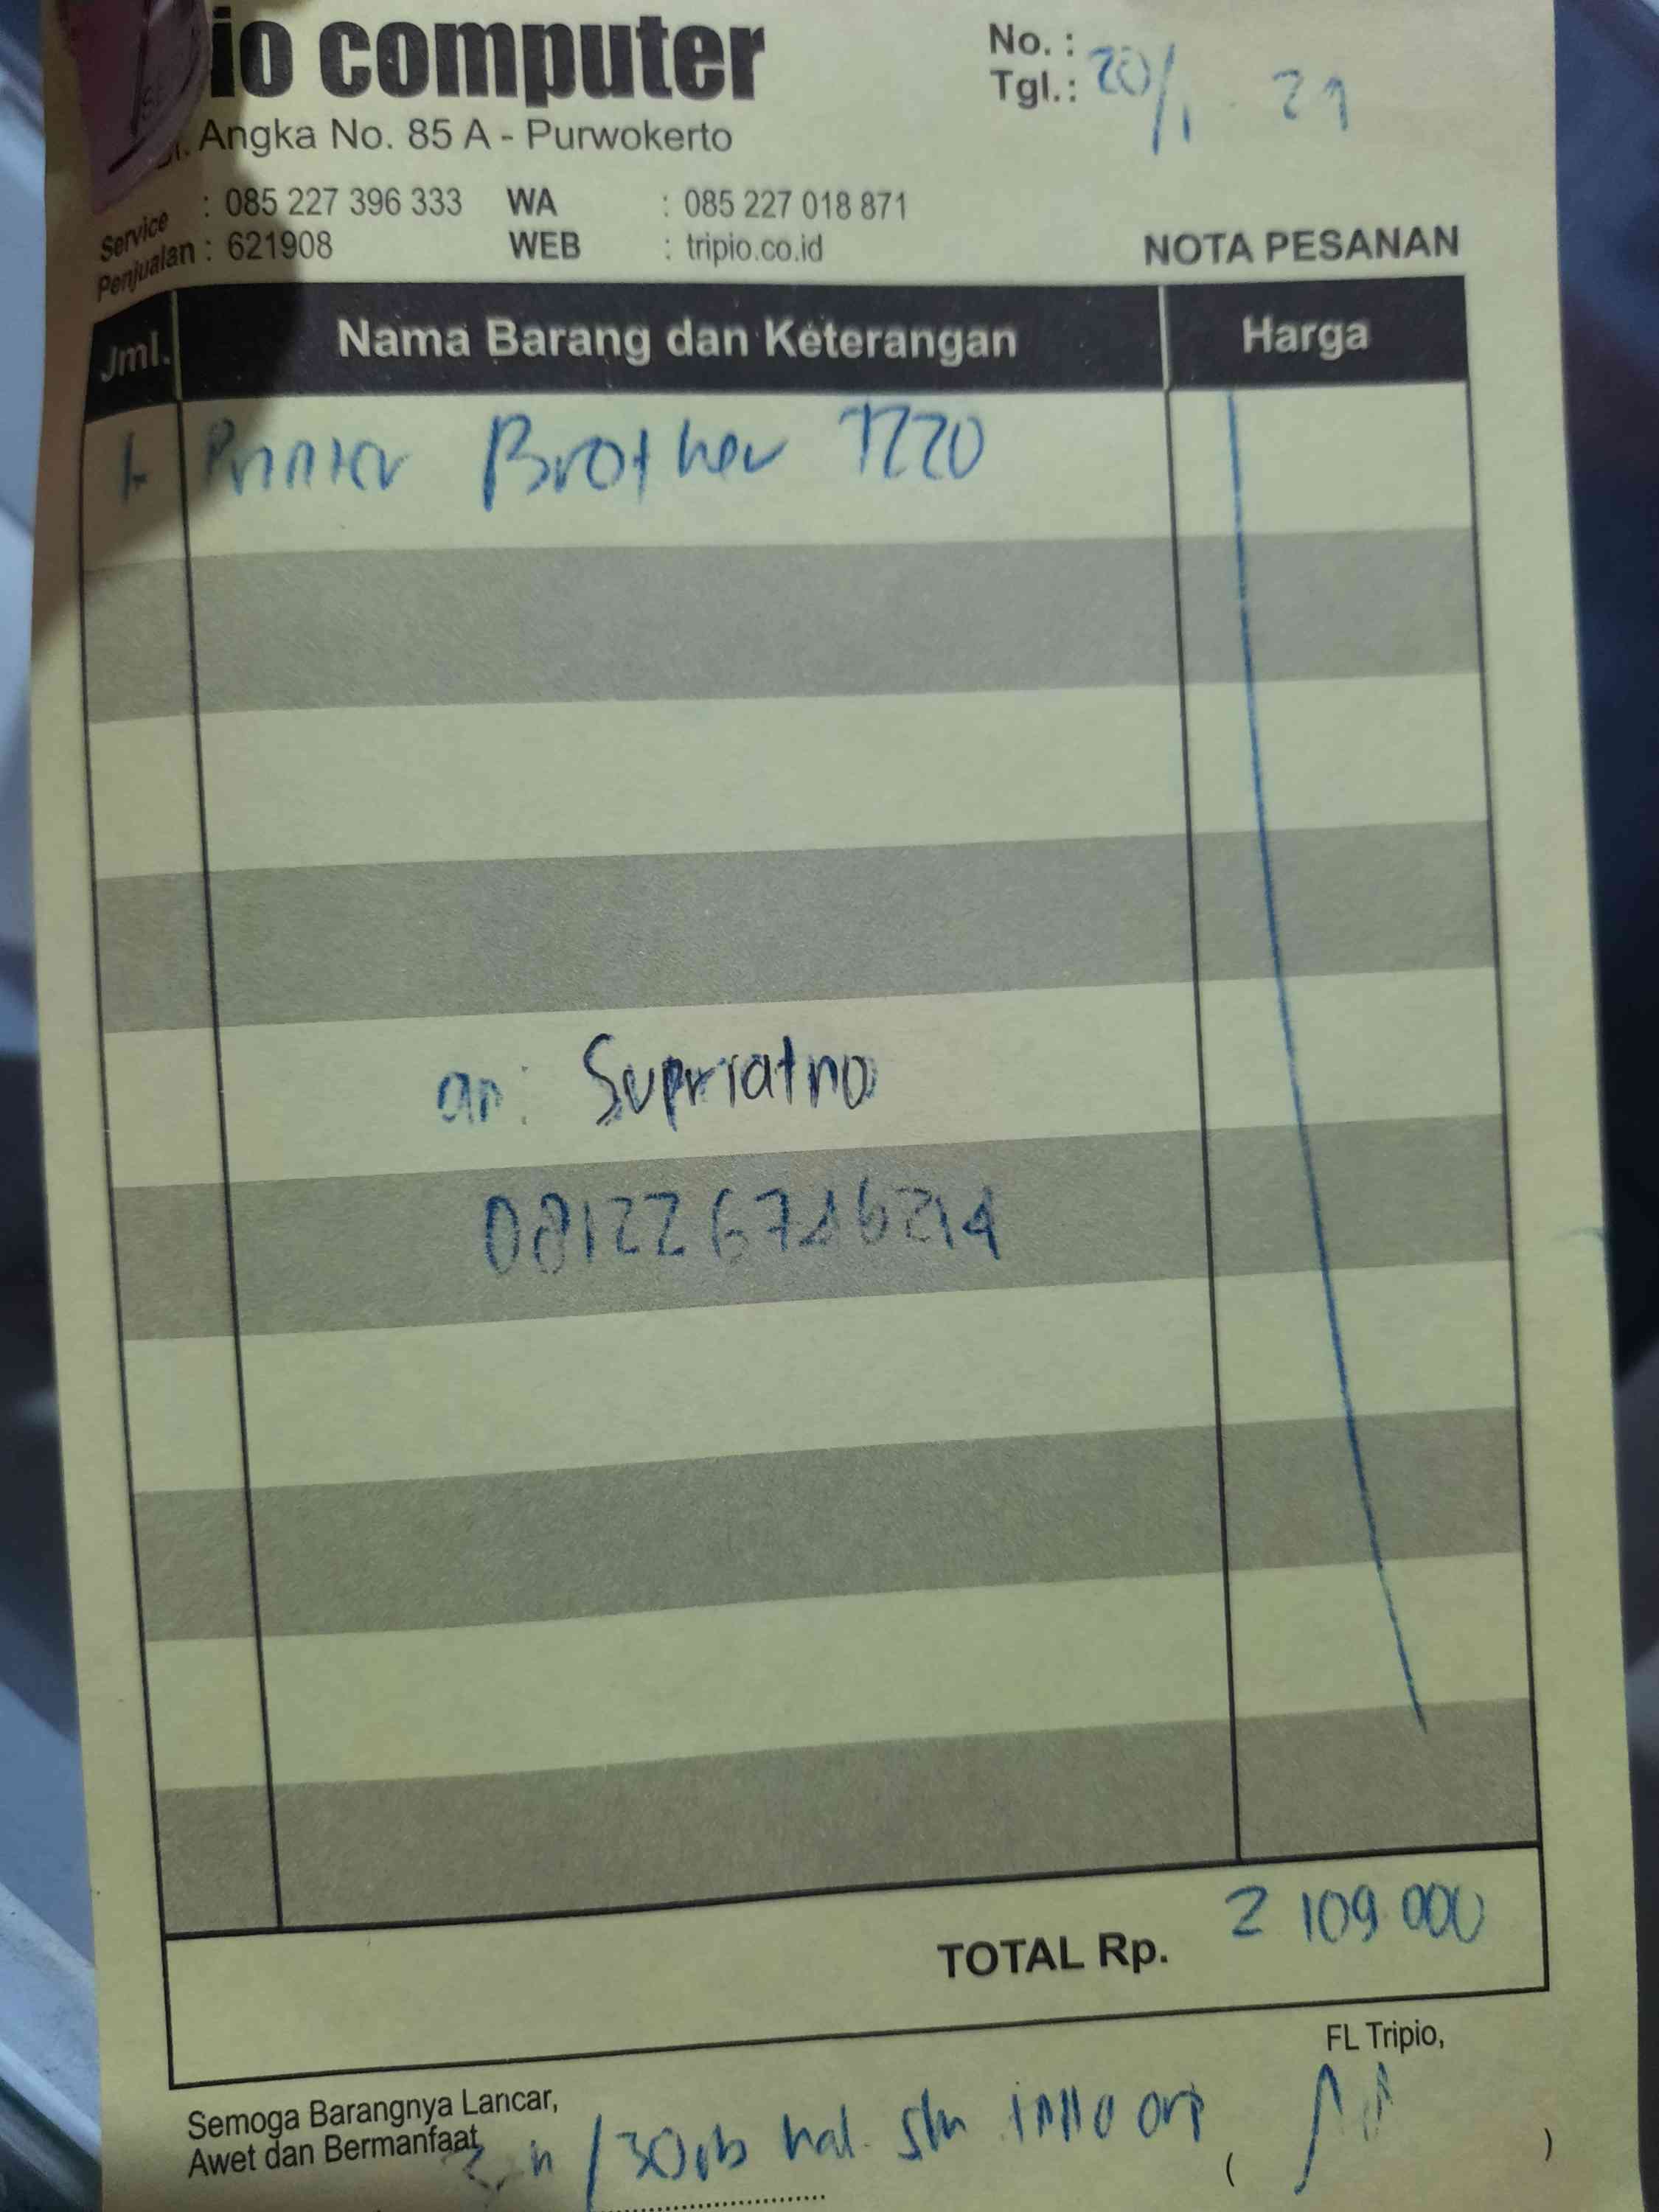 io computer
No. :
Tgl.: 20/1 - 21
Jl. Angka No. 85 A - Purwokerto
Service : 085 227 396 333 WA : 085 227 018 871
Penjualan : 621908 WEB : tripio.co.id
NOTA PESANAN
Jml. Nama Barang dan Keterangan Harga
1 Printer Brother T220
an: Supriatno
TOTAL Rp. 2 109 000
FL Tripio,
Semoga Barangnya Lancar,
Awet dan Bermanfaat
/30rb hal. ori
( )